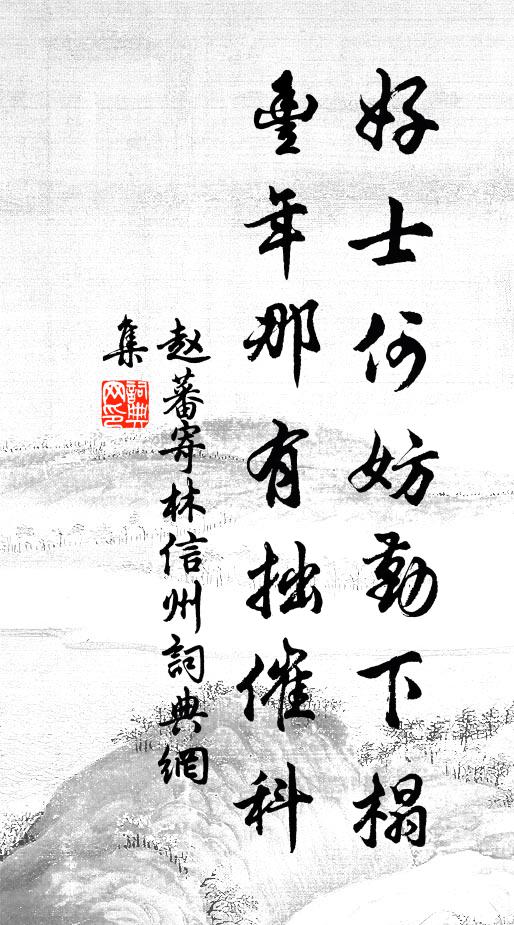 好士何妨勤下榻
豐年那有拙催科
赵蕃寄林信州詞典網
集
詞典
网印